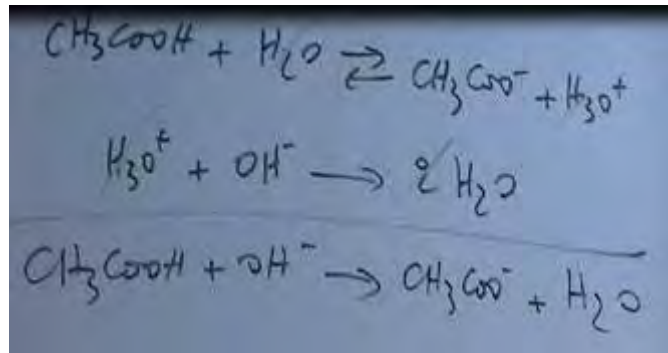 CH₃COOH + H₂O ⇌ CH₃COO⁻ + H₃O⁺
H₃O⁺ + OH⁻ → 2 H₂O
CH₃COOH + OH⁻ → CH₃COO⁻ + H₂O